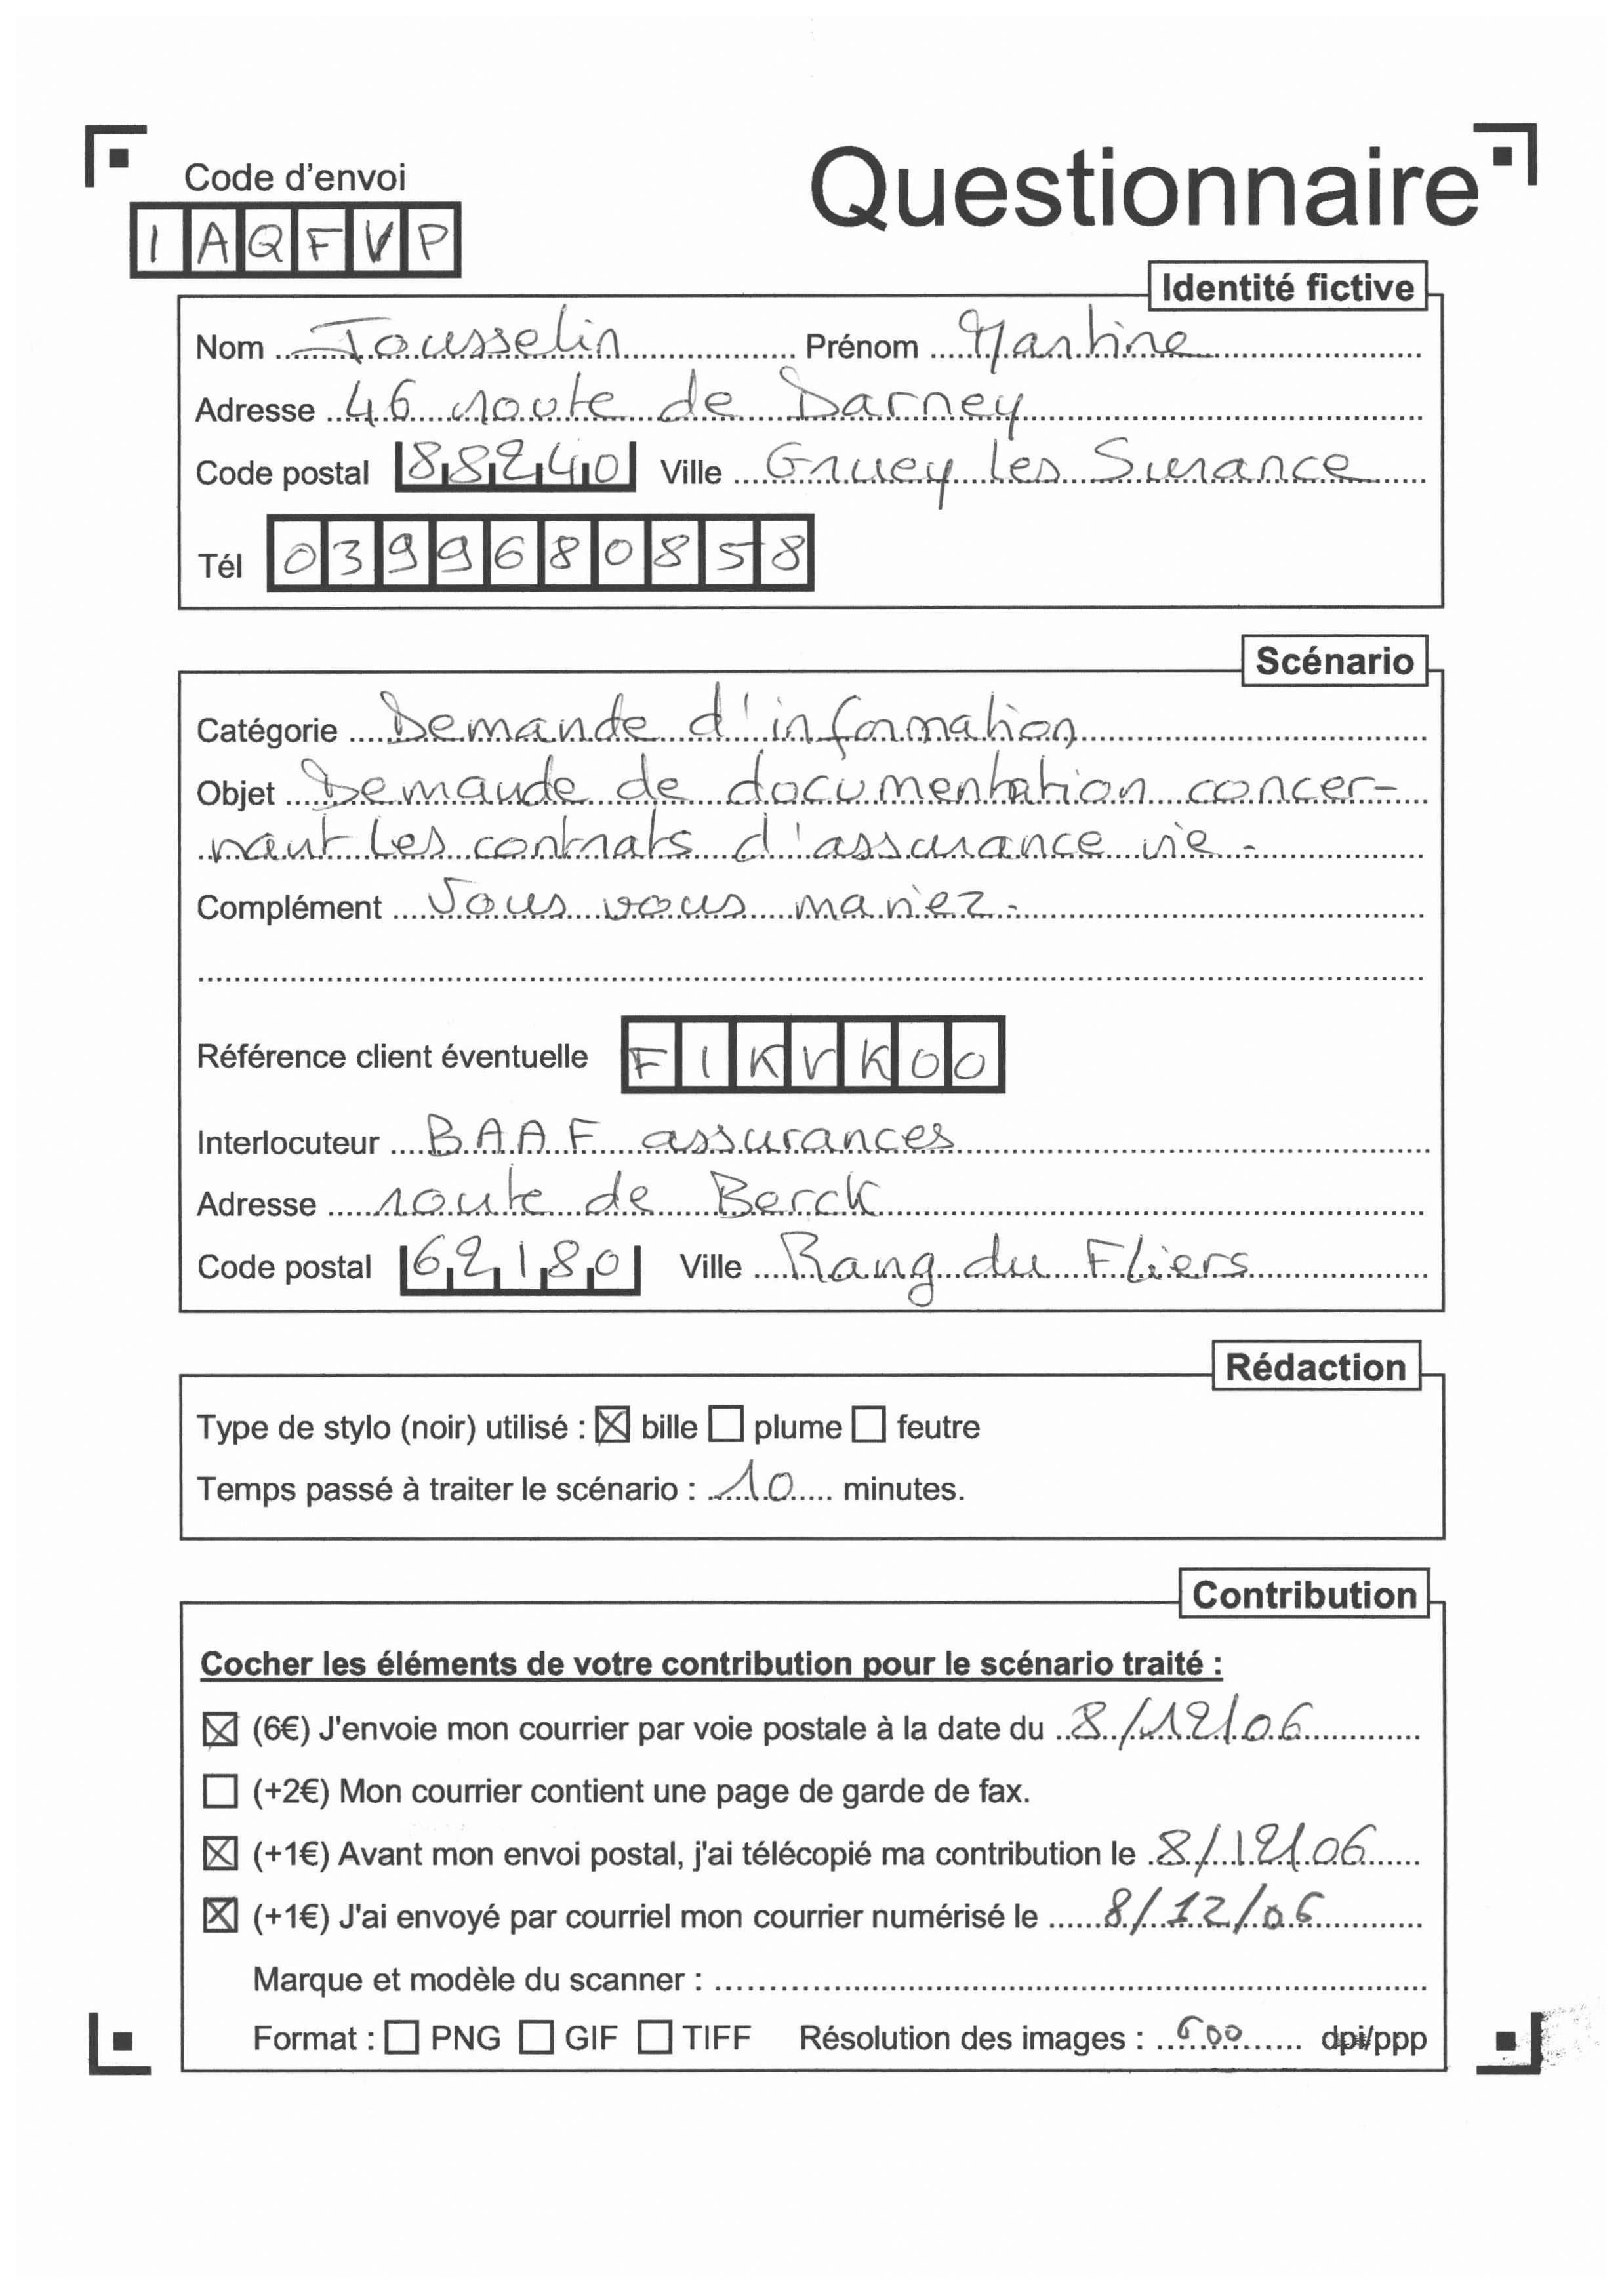 Code d'envoi
Questionnaire
IAQFVP
Identité fictive
Nom Jousselin Prénom Martine
Adresse 46 route de Darney
Code postal 88240 Ville Gruey les Surance
Tél 0399680858
Scénario
Catégorie Demande d'information
Objet Demande de documentation concer-
nant les contrats d'assurance vie.
Complément Vous vous mariez.
Référence client éventuelle FIKVK00
Interlocuteur BAAF assurances
Adresse route de Berck
Code postal 62180 Ville Rang du Fliers
Rédaction
Type de stylo (noir) utilisé : ☒ bille ☐ plume ☐ feutre
Temps passé à traiter le scénario : 10 minutes.
Contribution
Cocher les éléments de votre contribution pour le scénario traité :
☒ (6€) J'envoie mon courrier par voie postale à la date du 8/12/06
☐ (+2€) Mon courrier contient une page de garde de fax.
☒ (+1€) Avant mon envoi postal, j'ai télécopié ma contribution le 8/12/06
☒ (+1€) J'ai envoyé par courriel mon courrier numérisé le 8/12/06
Marque et modèle du scanner :
Format : ☐ PNG ☐ GIF ☐ TIFF Résolution des images : 600 dpi/ppp